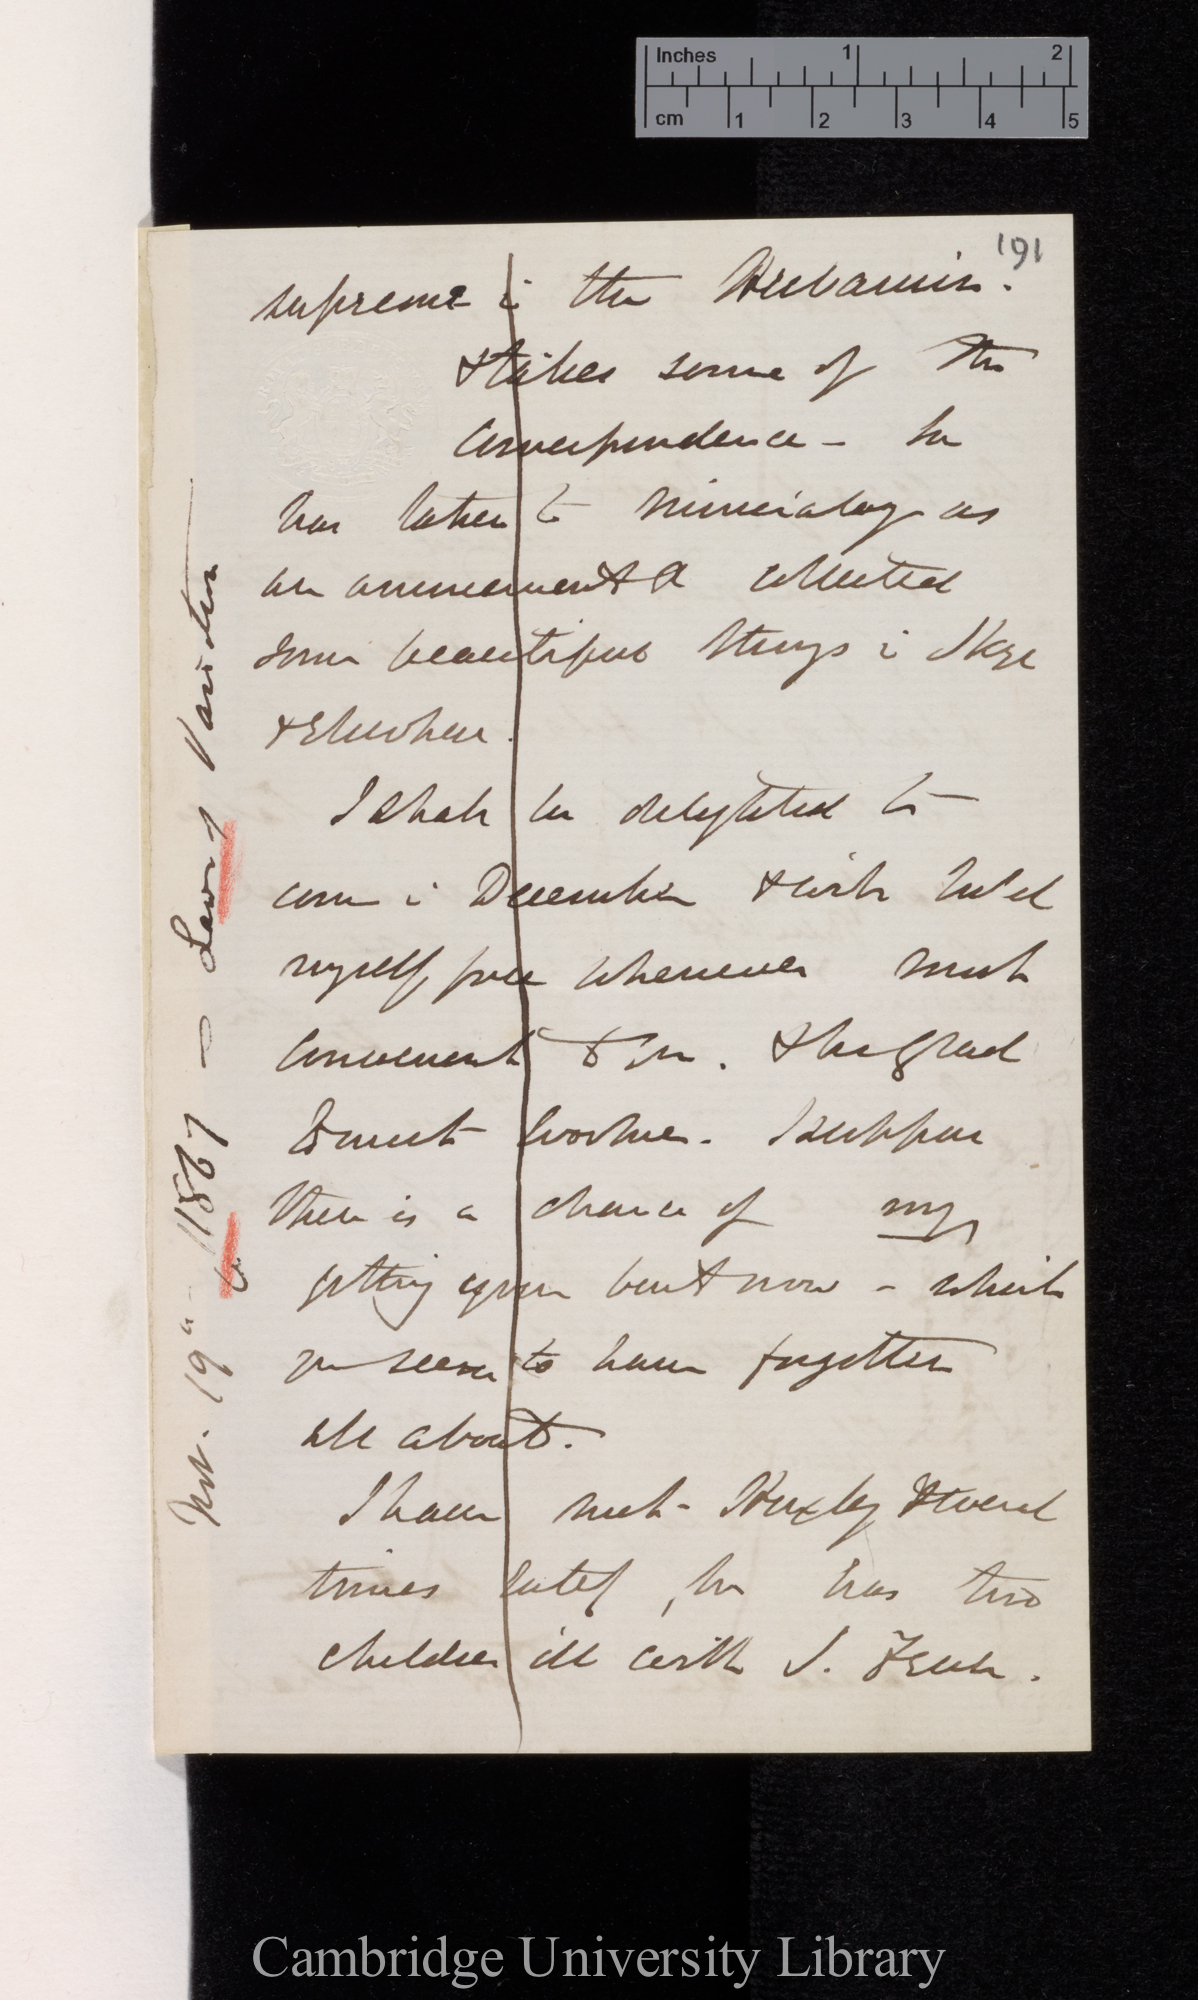 Inches 1 2
cm 1 2 3 4 5
191
supreme i the Herbarium.
& takes some of the
Correspondence — he
has taken to mineralogy as
an amusement & collected
some beautiful things i Skye
& Elsewhere.
I shall be delighted to
come i December & will hold
myself free whenever most
convenient to you. & be glad
to meet Woolner. I suppose
there is a chance of my
getting a bust now — which
you seem to have forgotten
all about.
I have met Huxley several
times lately, he has two
children ill with S. Fever.
1867 — Laws of Variation
Cambridge University Library